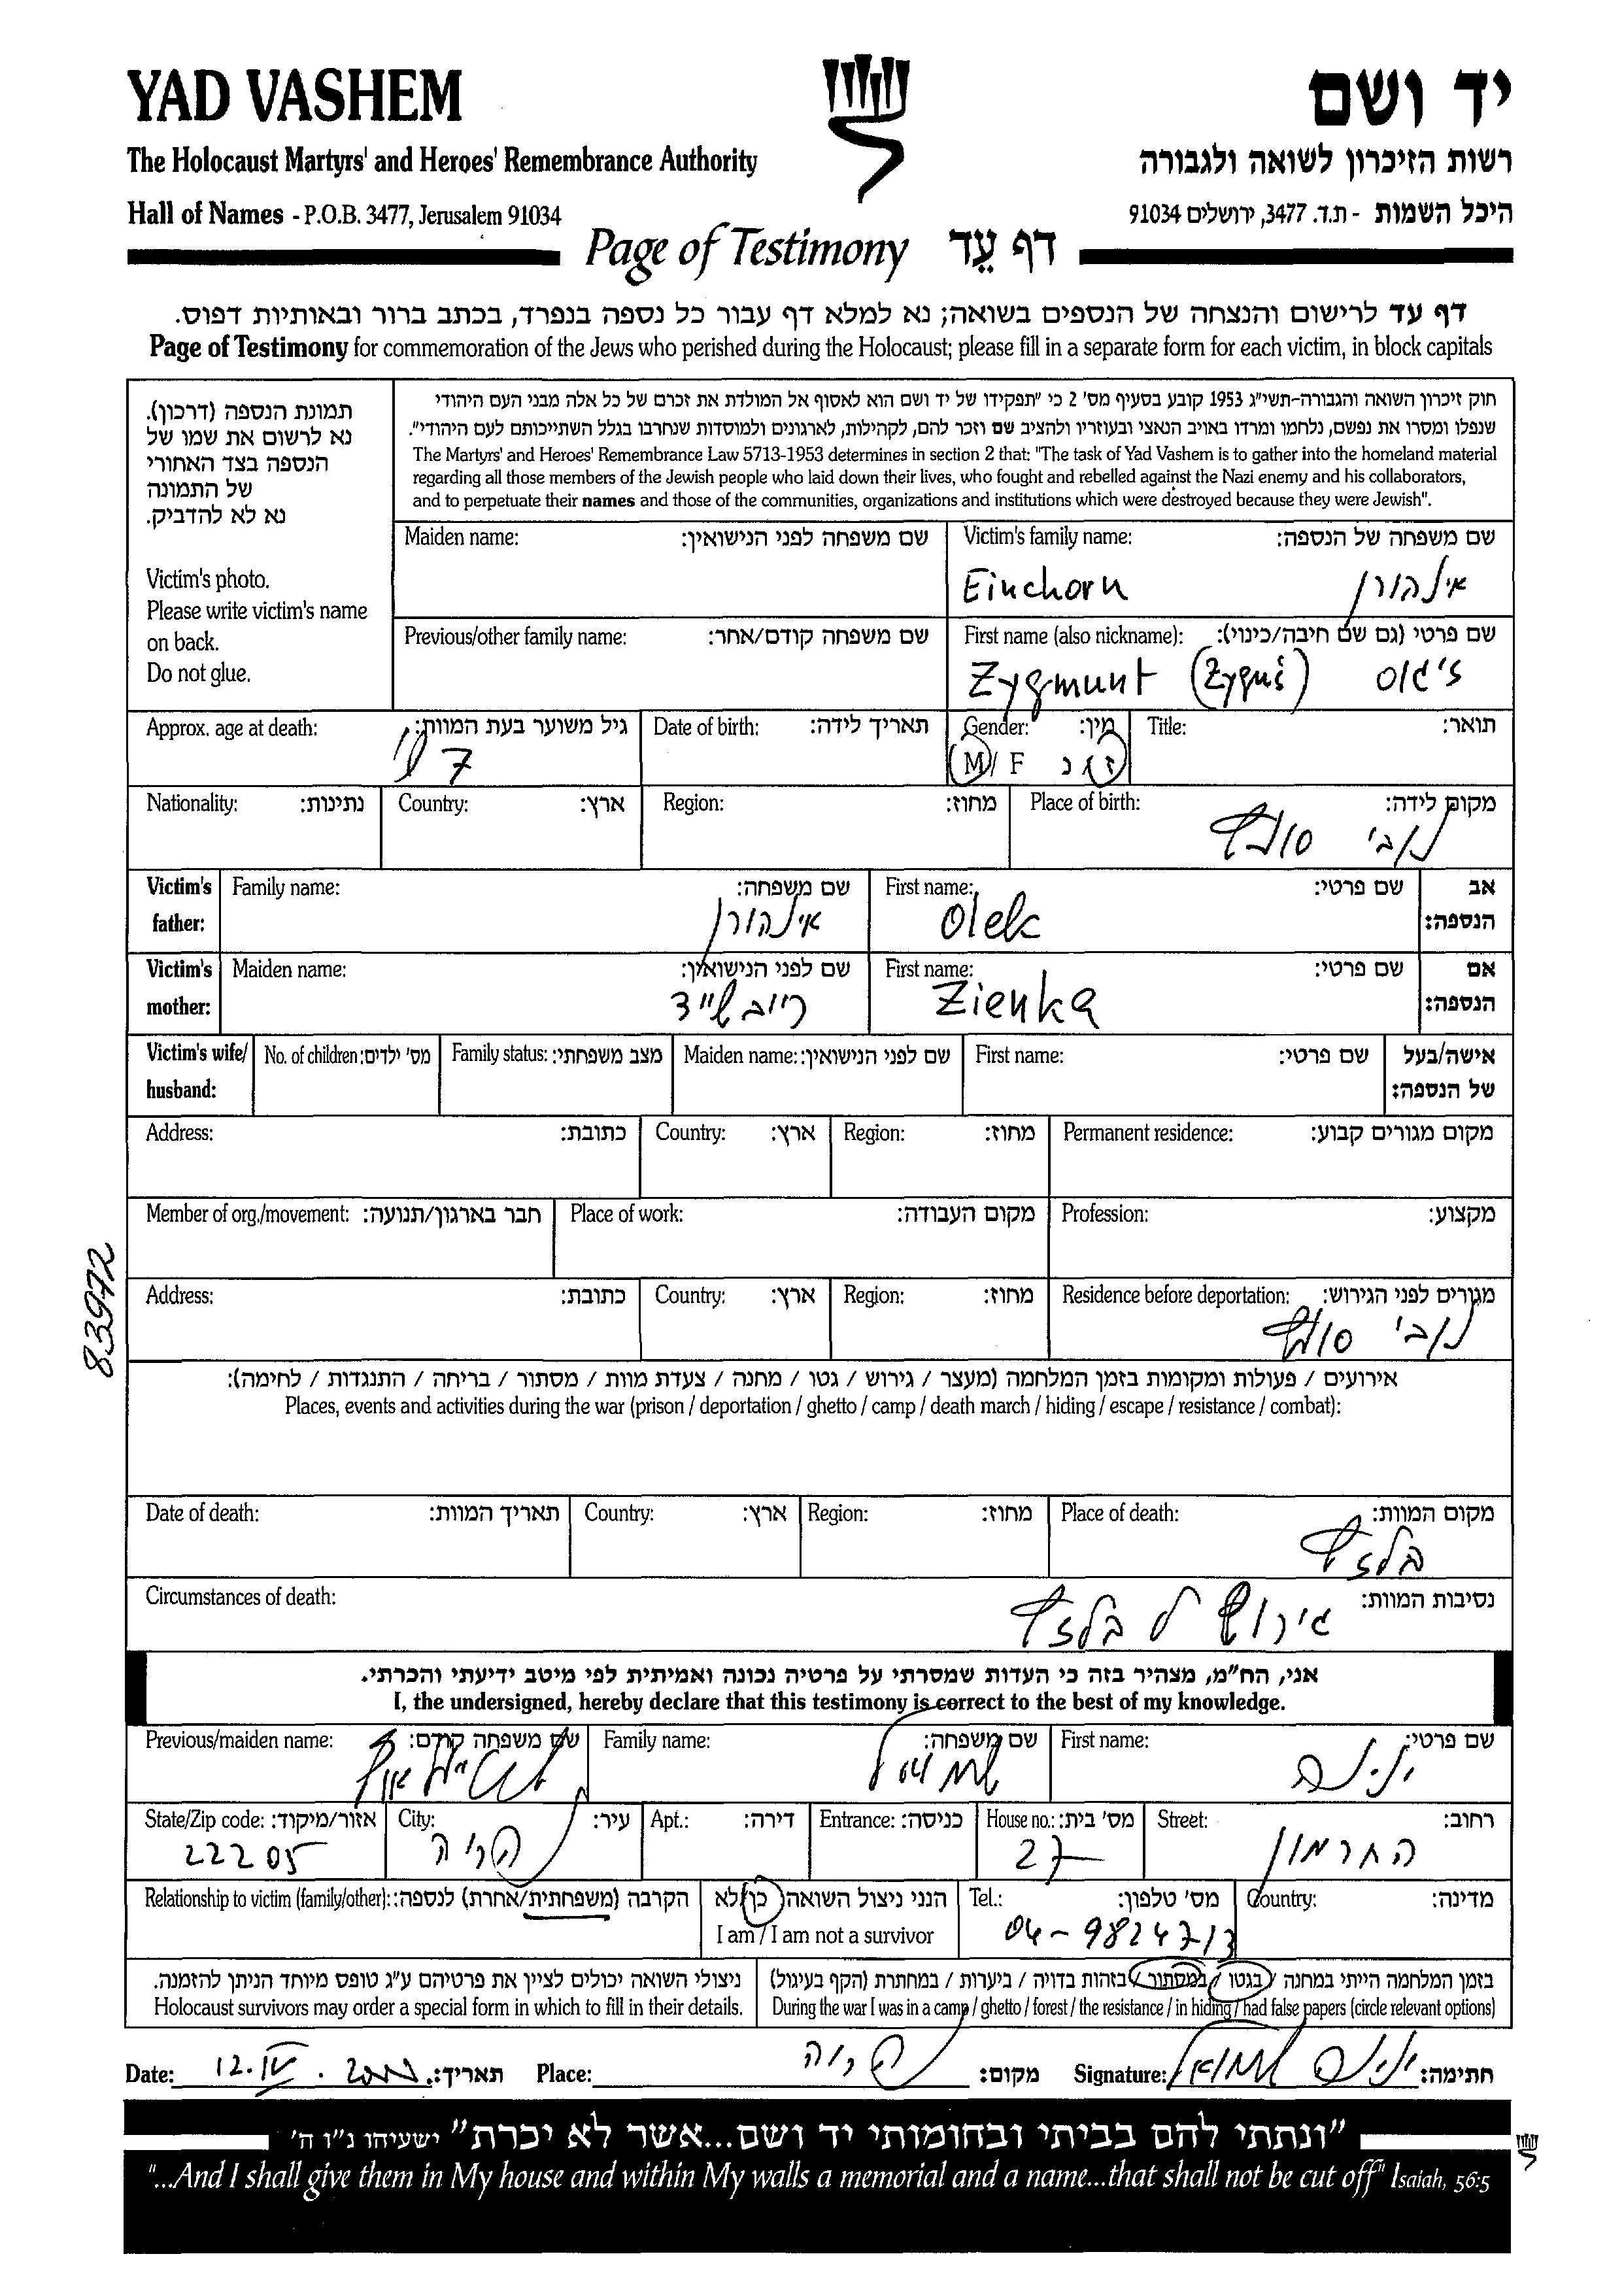 YAD VASHEM
יד ושם
The Holocaust Martyrs' and Heroes' Remembrance Authority
רשות הזיכרון לשואה ולגבורה
Hall of Names - P.O.B. 3477, Jerusalem 91034
היכל השמות - ת.ד. 3477, ירושלים 91034
Page of Testimony דף עֵד
דף עד לרישום והנצחה של הנספים בשואה; נא למלא דף עבור כל נספה בנפרד, בכתב ברור ובאותיות דפוס.
Page of Testimony for commemoration of the Jews who perished during the Holocaust; please fill in a separate form for each victim, in block capitals
תמונת הנספה (דרכון).
נא לרשום את שמו של
הנספה בצד האחורי
של התמונה
נא לא להדביק.
Victim's photo.
Please write victim's name
on back.
Do not glue.
חוק זיכרון השואה והגבורה-תשי"ג 1953 קובע בסעיף מס' 2 כי "תפקידו של יד ושם הוא לאסוף אל המולדת את זכרם של כל אלה מבני העם היהודי
שנפלו ומסרו את נפשם, נלחמו ומרדו באויב הנאצי ובעוזריו ולהציב שם וזכר להם, לקהילות, לארגונים ולמוסדות שנחרבו בגלל השתייכותם לעם היהודי".
The Martyrs' and Heroes' Remembrance Law 5713-1953 determines in section 2 that: "The task of Yad Vashem is to gather into the homeland material
regarding all those members of the Jewish people who laid down their lives, who fought and rebelled against the Nazi enemy and his collaborators,
and to perpetuate their names and those of the communities, organizations and institutions which were destroyed because they were Jewish".
Maiden name: שם משפחה לפני הנישואין:
Victim's family name: שם משפחה של הנספה:
Einchorn אינהורן
Previous/other family name: שם משפחה קודם/אחר:
First name (also nickname): שם פרטי (גם שם חיבה/כינוי):
Zygmunt (Zyguś) ז'גוס
Approx. age at death: גיל משוער בעת המוות:
7
Date of birth: תאריך לידה:
Gender: מין:
M / F ז / נ
Title: תואר:
Nationality: נתינות:
Country: ארץ:
Region: מחוז:
Place of birth: מקום לידה:
נובי סונץ
Victim's father: אב הנספה:
Family name: שם משפחה:
אינהורן
First name: שם פרטי:
Olek
Victim's mother: אם הנספה:
Maiden name: שם לפני הנישואין:
First name: שם פרטי:
Zienka
Victim's wife/ husband: אישה/בעל של הנספה:
No. of children: מס' ילדים:
Family status: מצב משפחתי:
Maiden name: שם לפני הנישואין:
First name: שם פרטי:
Address: כתובת:
Country: ארץ:
Region: מחוז:
Permanent residence: מקום מגורים קבוע:
Member of org./movement: חבר בארגון/תנועה:
Place of work: מקום העבודה:
Profession: מקצוע:
Address: כתובת:
Country: ארץ:
Region: מחוז:
Residence before deportation: מגורים לפני הגירוש:
נובי סונץ
83972
אירועים / פעולות ומקומות בזמן המלחמה (מעצר / גירוש / גטו / מחנה / צעדת מוות / מסתור / בריחה / התנגדות / לחימה):
Places, events and activities during the war (prison / deportation / ghetto / camp / death march / hiding / escape / resistance / combat):
Date of death: תאריך המוות:
Country: ארץ:
Region: מחוז:
Place of death: מקום המוות:
בלזץ
Circumstances of death: נסיבות המוות:
גירוש ל בלזץ
אני, הח"מ, מצהיר בזה כי העדות שמסרתי על פרטיה נכונה ואמיתית לפי מיטב ידיעתי והכרתי.
I, the undersigned, hereby declare that this testimony is correct to the best of my knowledge.
Previous/maiden name: שם משפחה קודם:
Family name: שם משפחה:
First name: שם פרטי:
ינינה
State/Zip code: אזור/מיקוד:
22205
City: עיר:
Apt.: דירה:
Entrance: כניסה:
House no.: מס' בית:
27
Street: רחוב:
החרמון
Relationship to victim (family/other): הקרבה (משפחתית/אחרת) לנספה:
הנני ניצול השואה כן/לא
I am / I am not a survivor
Tel.: מס' טלפון:
04-9824713
Country: מדינה:
ניצולי השואה יכולים לציין את פרטיהם ע"ג טופס מיוחד הניתן להזמנה.
Holocaust survivors may order a special form in which to fill in their details.
בזמן המלחמה הייתי במחנה / בגטו / במסתור / בזהות בדויה / ביערות / במחתרת (הקף בעיגול)
During the war I was in a camp / ghetto / forest / the resistance / in hiding / had false papers (circle relevant options)
Date: 12.IV.2000 תאריך:
Place: מקום:
Signature: ינינה חתימה:
"ונתתי להם בביתי ובחומותי יד ושם...אשר לא יכרת" ישעיהו נ"ו ה'
"...And I shall give them in My house and within My walls a memorial and a name...that shall not be cut off" Isaiah, 56:5